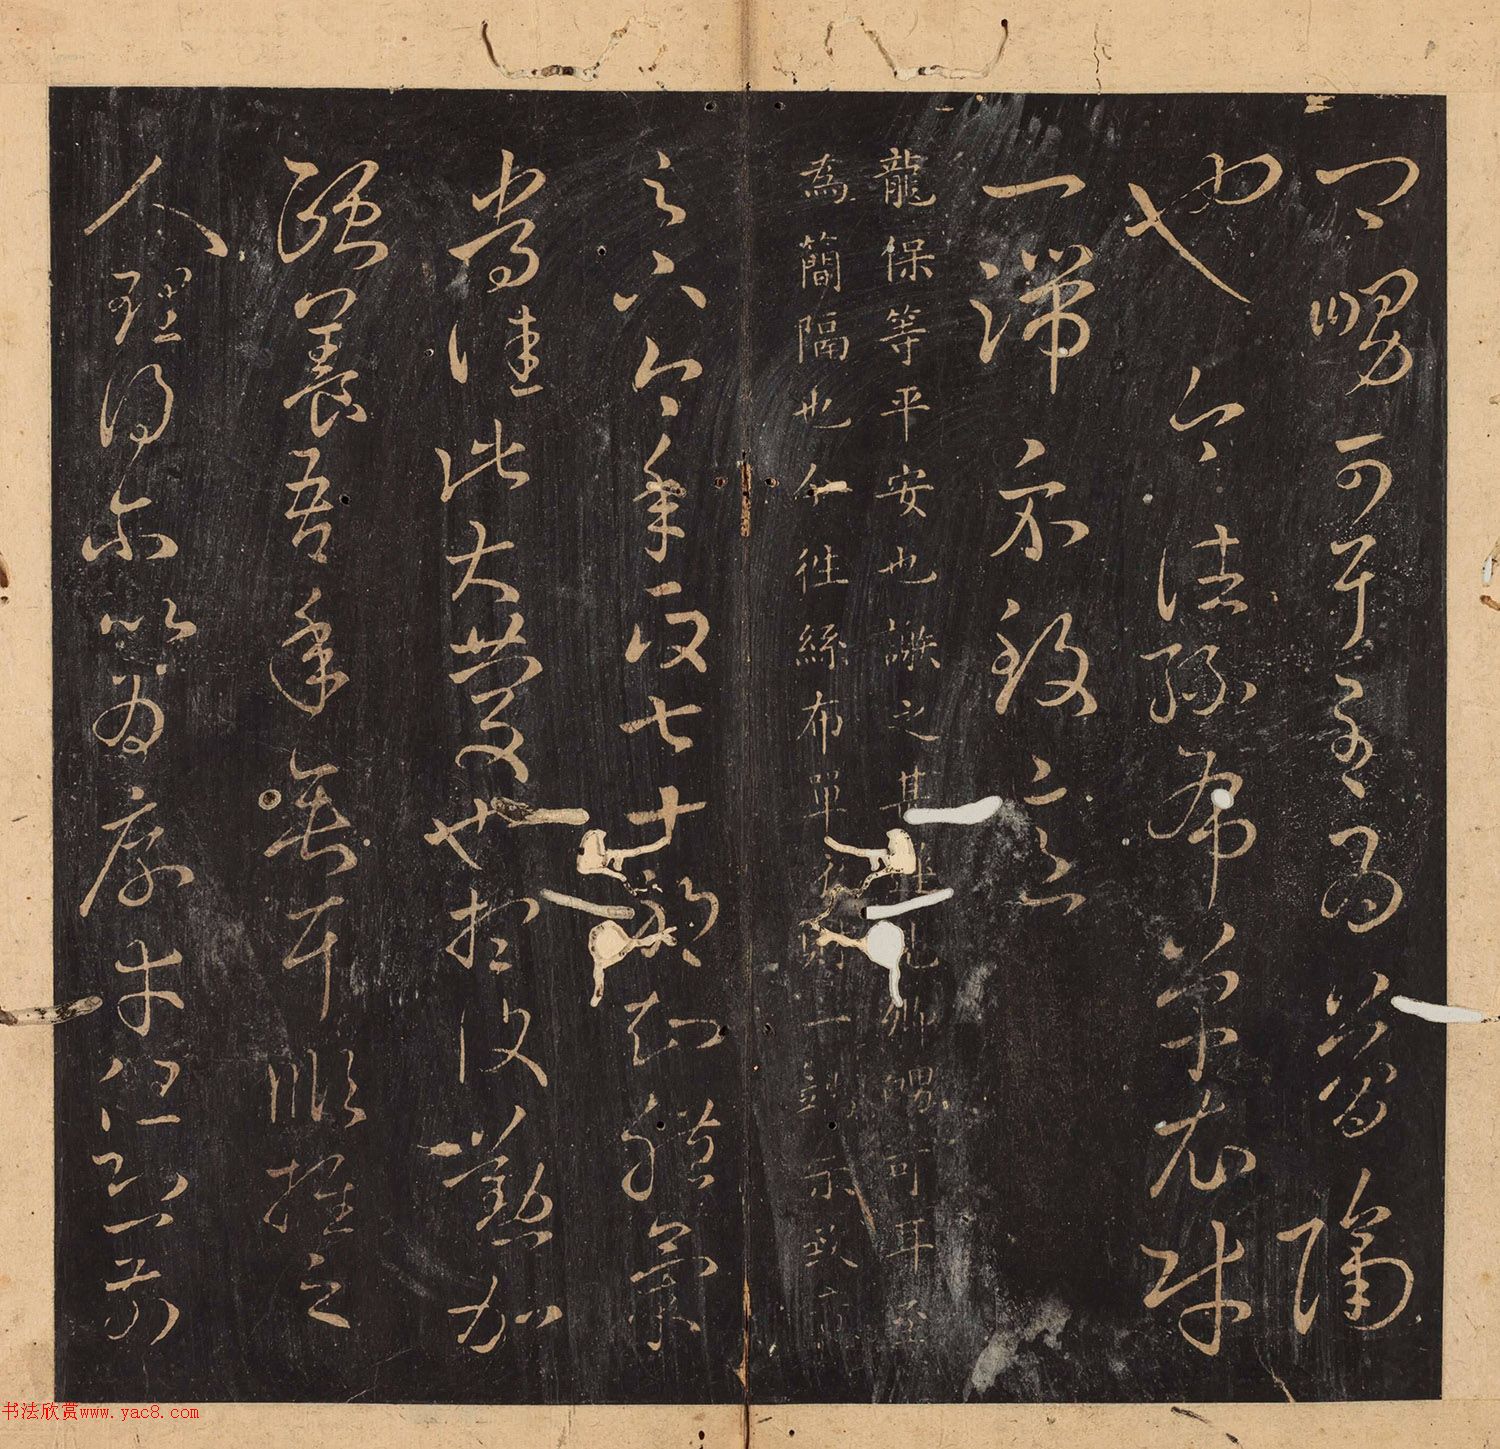 四嫂可耳至为简隔
也今往丝布单衣财
一端示致意
龍保等平安也謝之甚
為簡隔也今往絲布單衣財一端示致意
足下今年政七十耶知體氣
常佳此大慶也想復懃加
頤養吾年垂耳順推之
人理得爾以為厚幸但恐前
書法欣赏www.yac8.com